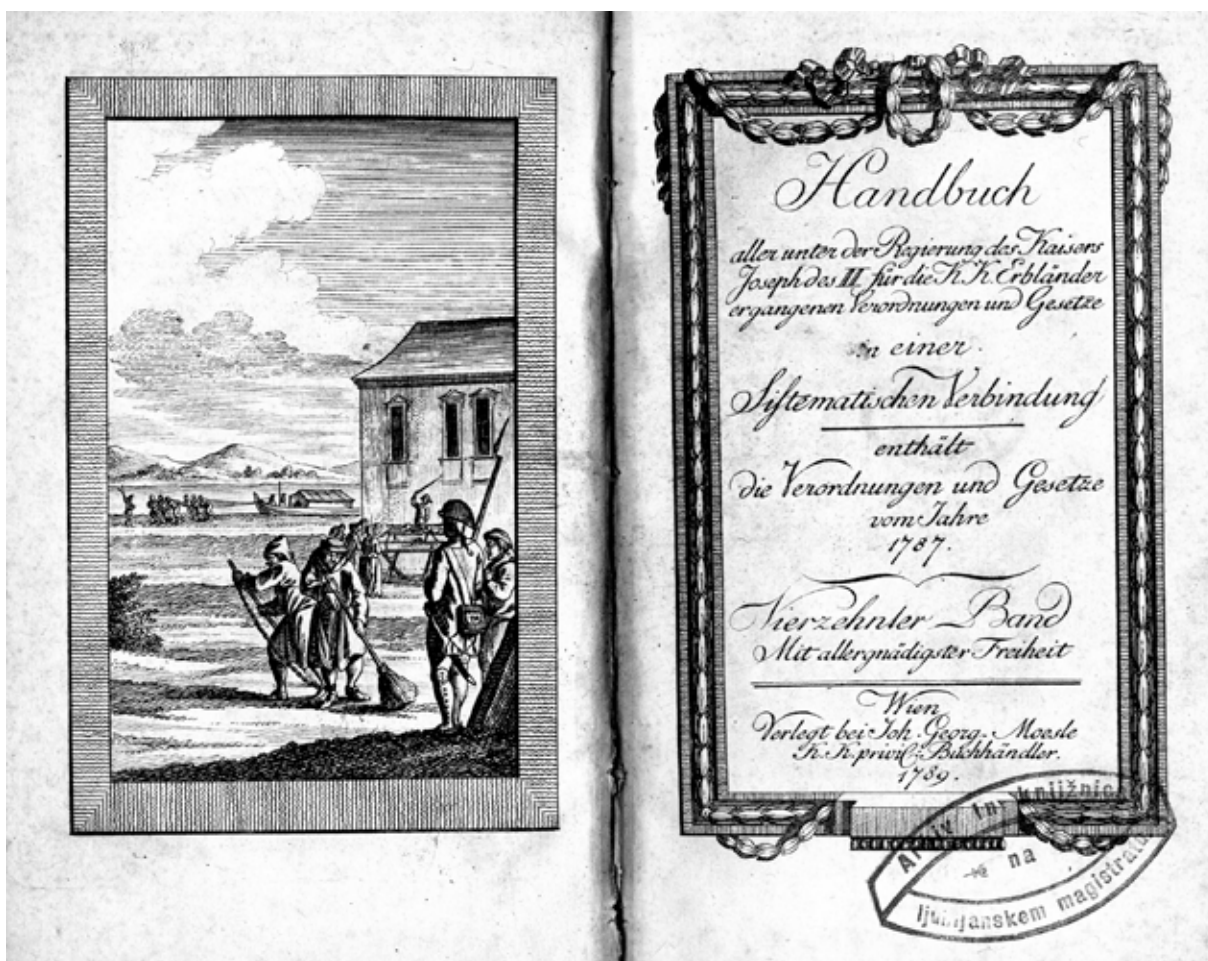 Handbuch
aller unter der Regierung des Kaisers
Joseph des II für die K. K. Erbländer
ergangenen Verordnungen und Gesetze
in einer
Sistematischen Verbindung
enthält
die Verordnungen und Gesetze
vom Jahre
1787.
Vierzehnter Band
Mit allergnädigster Freiheit
Wien
Verlegt bei Joh. Georg. Moesle
K. K. privil: Buchhändler.
1789.
Arhiv in knjižnica
na
ljubljanskem magistratu